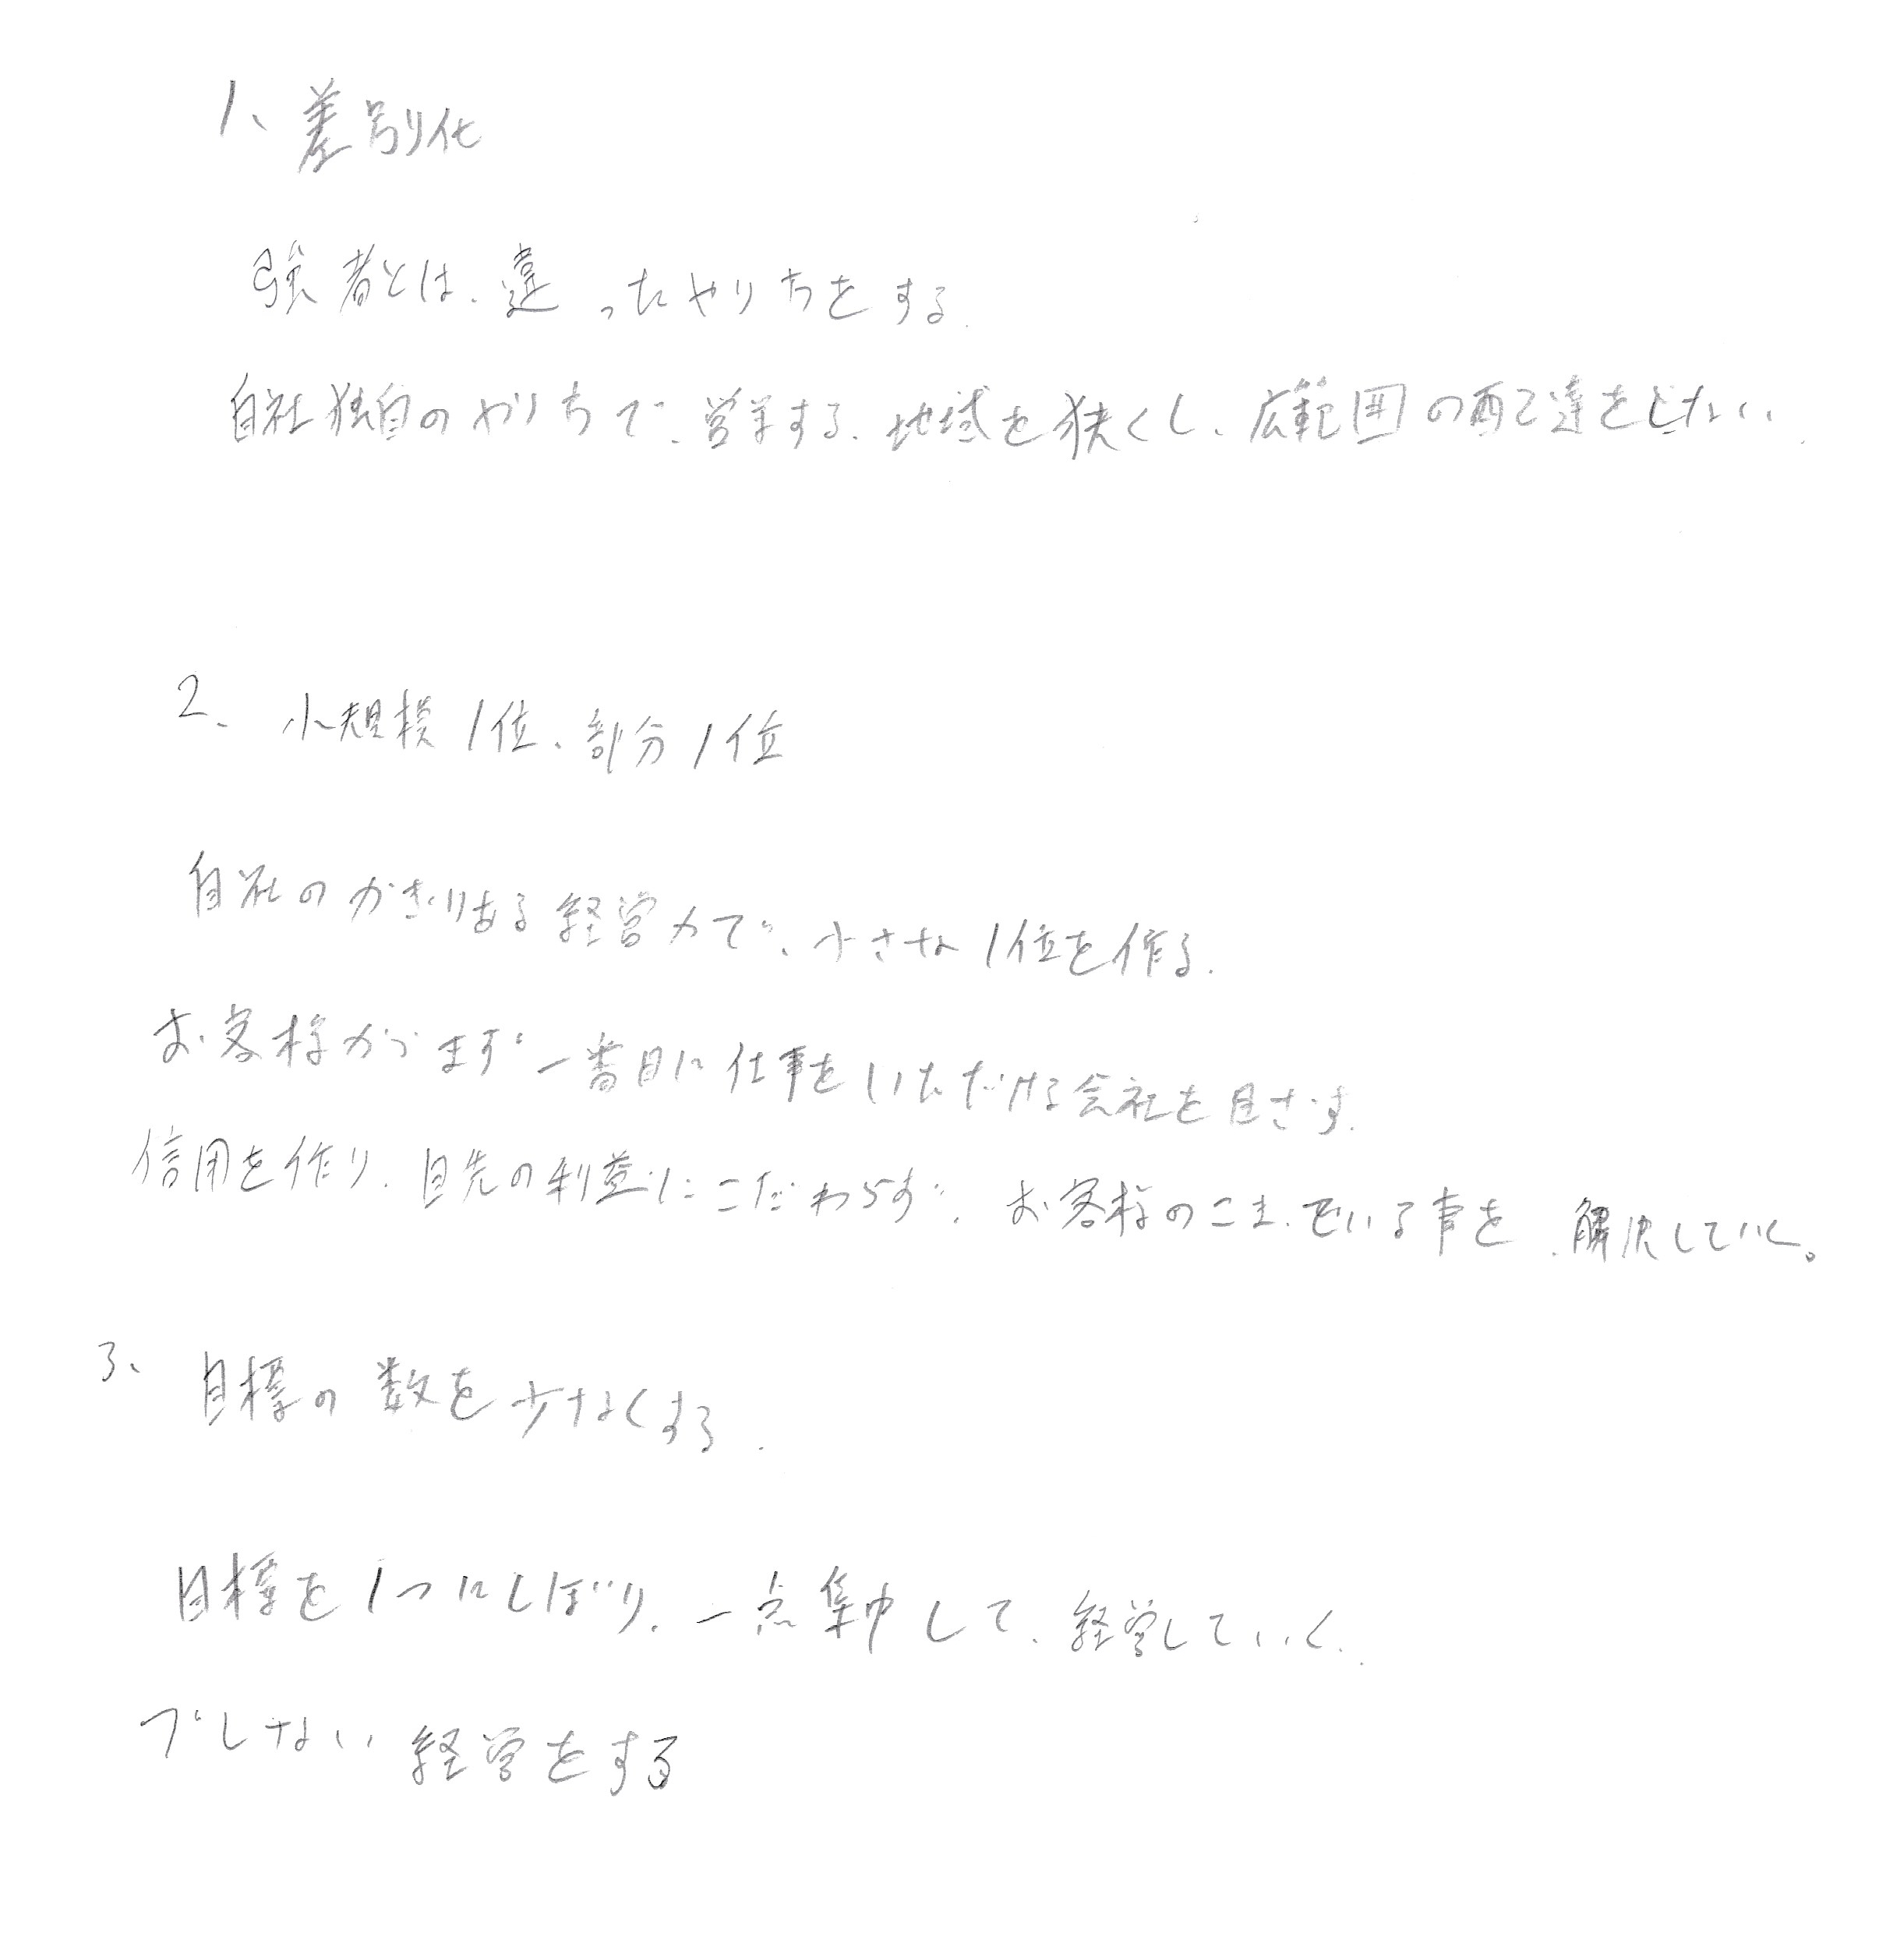 1、差別化
強者とは、違ったやり方をする。
自社独自のやり方で、営業する、地域を狭くし、広範囲の配達をしない。
2、小規模1位、部分1位
自社のかぎりある経営力で、小さな1位を作る。
お客様がまず一番目に仕事をいただける会社を目ざす。
信用を作り、目先の利益にこだわらず、お客様のこまっている事を、解決していく。
3、目標の数を少なくする。
目標を1つにしぼり、一点集中して、経営していく。
ブレない経営をする